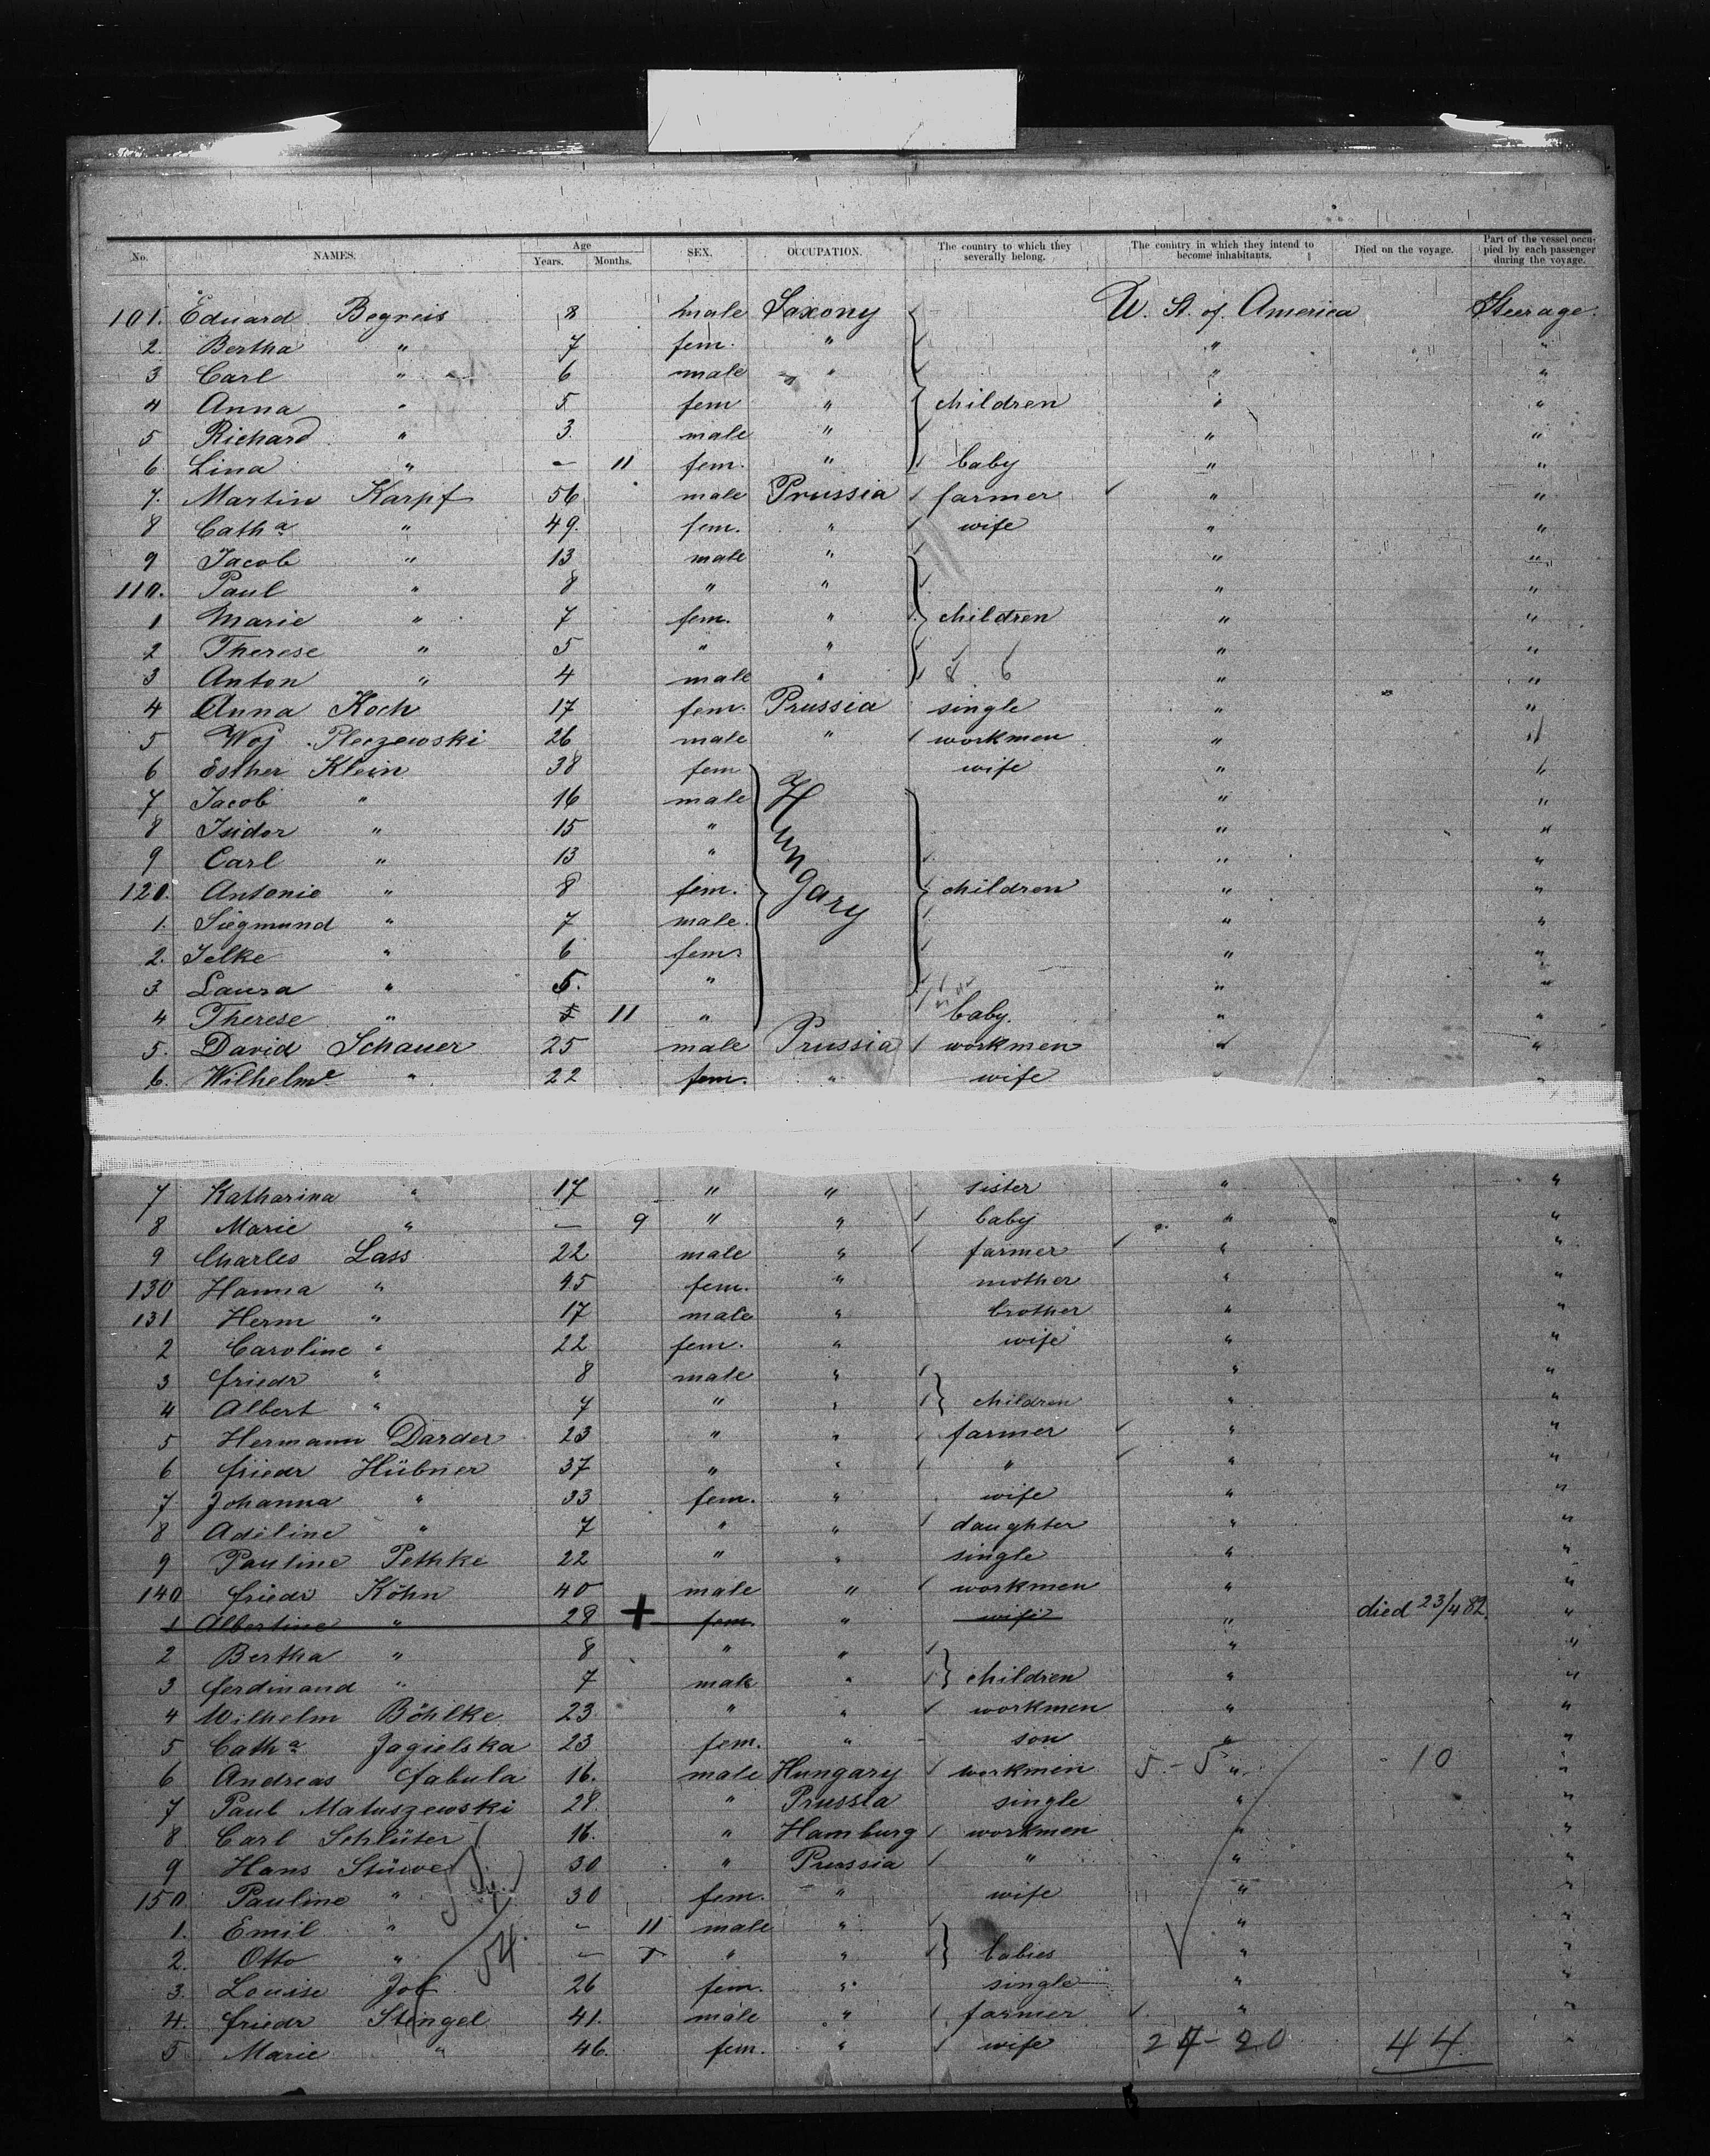 No. NAMES. Age Years. Months. SEX. OCCUPATION. The country to which they severally belong. The country in which they intend to become inhabitants. Died on the voyage. Part of the vessel occupied by each passenger during the voyage.
101. Eduard Begreis 8 male Saxony U. St. of America Steerage.
2. Bertha " 7 fem. " " "
3 Carl " 6 male " " "
4 Anna " 5 fem " children " "
5 Richard " 3 male " " "
6. Lina " – 11 fem. " baby " "
7. Martin Karpf 56 male Prussia farmer " "
8 Catha " 49. fem. " wife " "
9 Jacob " 13 male " " "
110. Paul " 8 " " " "
1 Marie " 7 fem. " children " "
2 Therese " 5 " " " "
3 Anton " 4 male " 8 6 " "
4 Anna Koch 17 fem. Prussia single " "
5 Woj. Pleczewski 26 male " workmen " "
6 Esther Klein 38 fem Hungary wife " "
7 Jacob " 16 male " "
8 Isidor " 15 " " "
9 Carl " 13 " " "
120. Antonie " 8 fem. children " "
1. Siegmund " 7 male. " "
2. Jelke " 6 fem. " "
3 Laura " 5. " " "
4 Therese " 11 " baby. " "
5. David Schauer 25 male Prussia workmen " "
6. Wilhelme " 22 fem. " wife " "
7 Katharina " 17 " " sister " "
8 Marie " – 9 " " baby " "
9 Charles Lass 22 male " farmer " "
130 Hanna " 45 fem. " mother " "
131 Herm " 17 male " brother " "
2 Caroline " 22 fem. " wife " "
3 Friedr " 8 male " " "
4 Albert " 7 " " children " "
5 Hermann Darder 23 " " farmer " "
6 Friedr Hübner 37 " " " " "
7 Johanna " 33 fem. " wife " "
8 Adeline " 7 " " daughter " "
9 Pauline Pethke 22 " " single " "
140 Friedr Köhn 40 male " workmen " "
1 Albertine " 28 + fem. " wife " died 23/4 82. "
2 Bertha " 8 " " " "
3 Ferdinand " 7 male " children " "
4 Wilhelm Böhlke 23 " " workmen " "
5 Catha Jagielska 23 fem. " son " "
6 Andreas Fabula 16. male Hungary workmen 5 - 5 " 10 "
7 Paul Matuszewski 28. " Prussia single " "
8. Carl Schlüter 16. " Hamburg workmen " "
9 Hans Stüwe 30 " Prussia " " "
150. Pauline " 30 fem. " wife " "
1. Emil " – 11 male " " "
2. Otto " 54. – " " babies " "
3. Louise Job 26 fem. " single " "
4. Friedr Stengel 41. male " farmer " "
5 Marie " 46. fem. " wife 24 - 20 44 "